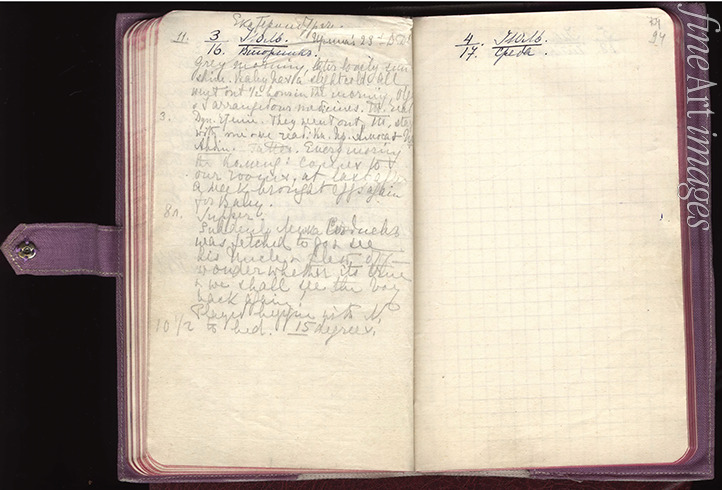 Екатеринбург.
11. 3 Июль. Ирина's 23d B.D.
16. Вторникъ.
Grey morning, later lovely sun
shine. Baby has a slight cold. All
went out ½ hour in the morning, Olga
& I arranged our medicines. T. read
3. Spir. They went out, T. stayed
with me & we read: Bk. pr. Amos &
pr. Every morning
the Komend: comes to
our rooms, at last after
a week brought eggs again
for Baby.
8h. Supper.
Suddenly Lenka Sednev
was fetched to go & see
his Uncle & flew off -
wonder whether its true
& we shall see the boy
back again!
Played bezique with N.
10½ to bed. 15 degrees.
4. Июль.
17. Среда.
fine Art images